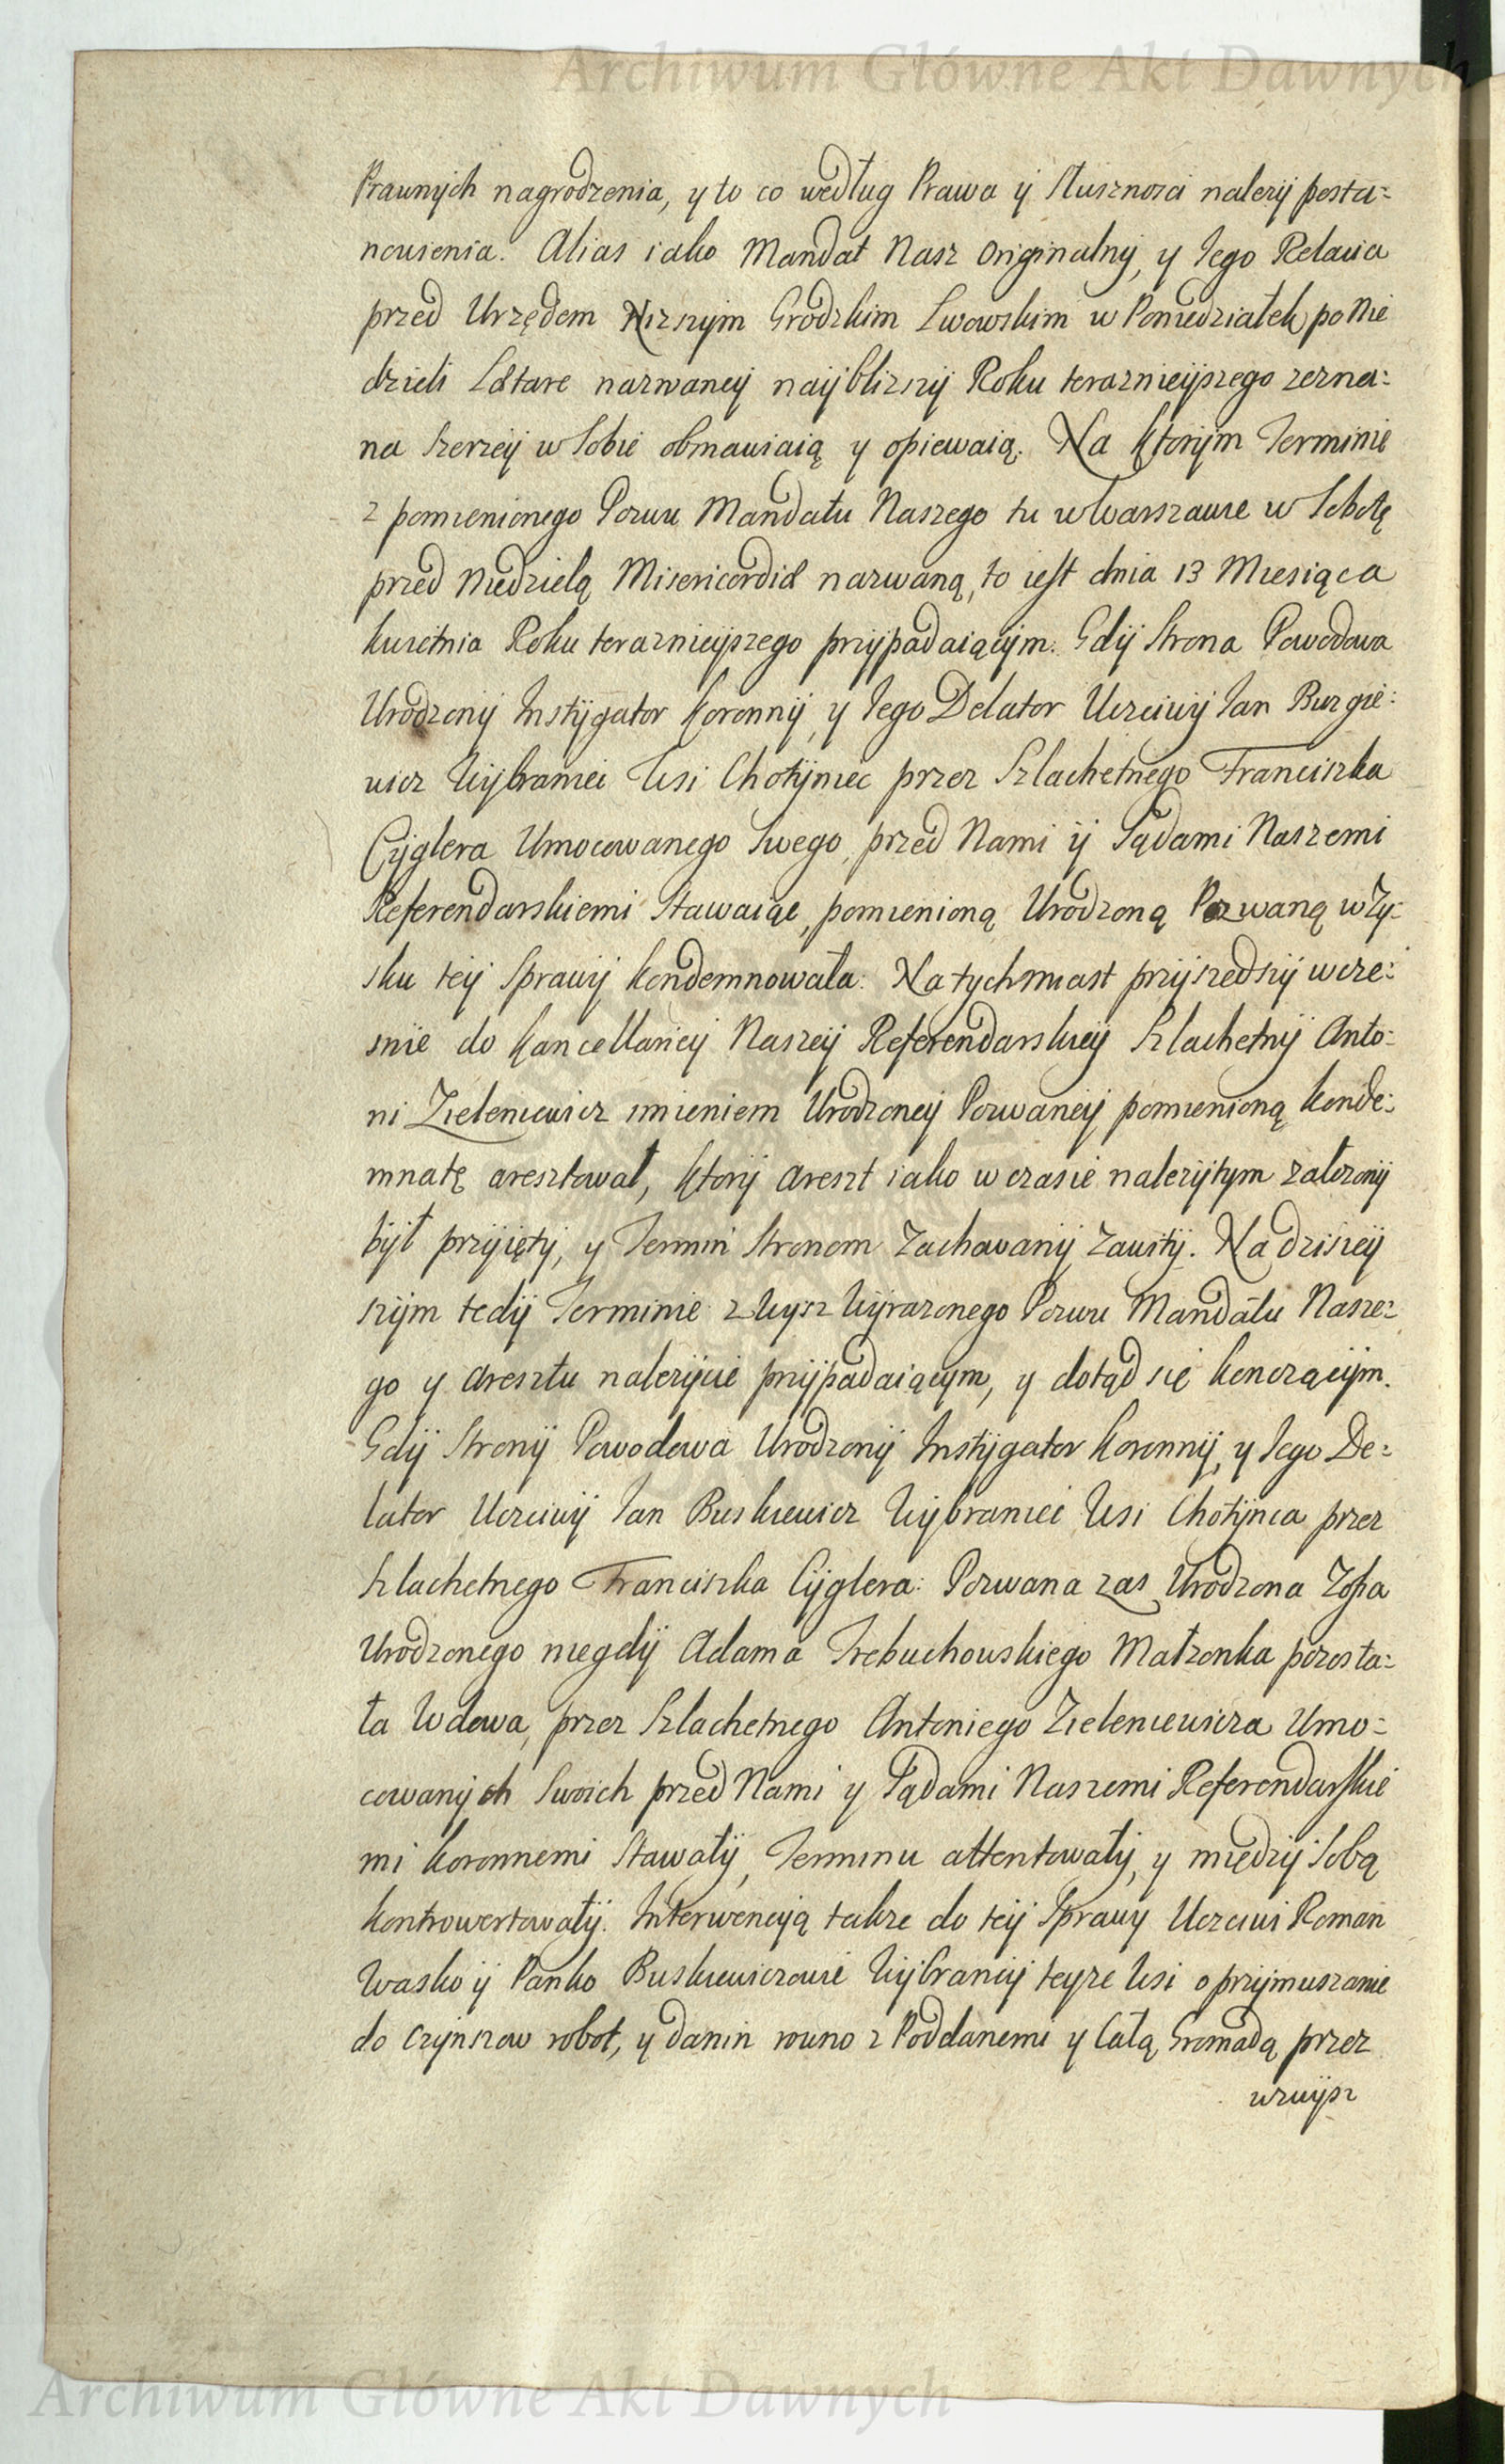 Archiwum Główne Akt Dawnych
Prawnych nagrodzenia, y to co według Prawa ÿ Słuszności należÿ posta=
nowienia. Alias iako Mandat Nasz Originalnÿ, y Jego Relacia
przed Urzędem Nizszÿm Grodzkim Lwowskim w Poniedziałek po Nie
dzieli Lætare nazwaneÿ naÿblizszÿ Roku teraznieÿszego zezna=
na szerzeÿ w Sobie obmawiaią y opiewaią. Na ktorÿm Terminie
z pomienionego Pozwu Mandatu Naszego tu w Warszawie w Sobotę
przed Niedzielą Misericordiæ nazwaną, to iest dnia 13 Miesiąca
kwietnia Roku teraznieÿszego przÿpadaiącÿm. Gdÿ Strona Powodowa
Urodzonÿ Instÿgator koronnÿ, y Jego Delator Uczciwÿ Jan Burgie=
wicz Wÿbraniec Wsi Chotÿniec przez Szlachetnego Franciszka
Cÿglera Umocowanego Swego, przed Nami ÿ Sądami Naszemi
Referendarskiemi Stawaiąc, pomienioną Urodzoną Pozwaną w Zy=
sku teÿ Sprawÿ kondemnowała. Natychmiast przÿszedszÿ wcze=
snie do kancellarieÿ Naszeÿ Referendarskieÿ Szlachetnÿ Anto=
ni Zieleniewicz imieniem Urodzoneÿ Pozwaneÿ pomienioną konde=
mnatę aresztował, ktorÿ areszt iako w czasie należÿtym założonÿ
bÿł przÿiętÿ, y Termin Stronom Zachowanÿ Zawitÿ. Na dzisieÿ
szÿm tedÿ Terminie z Wysz Wÿrazonego Pozwu Mandatu Nasze=
go y aresztu należÿcie przÿpadaiącym, y dotąd się kończącÿm.
Gdÿ Stronÿ Powodowa Urodzonÿ Instÿgator koronnÿ, y Jego De=
lator Uczciwÿ Jan Buskiewicz Wÿbraniec Wsi Chotÿnca przez
Szlachetnego Franciszka Cÿglera: Pozwana zas Urodzona Zofia
Urodzonego niegdÿ Adama Trebuchowskiego Małzonka pozosta=
ła Wdowa, przez Szlachetnego Antoniego Zieleniewicza Umo=
cowanÿch Swoich przed Nami y Sądami Naszemi Referendarskie
mi koronnemi Stawałÿ, Terminu attentowałÿ, y międzÿ Sobą
kontrowertowałÿ. Interwencÿą także do teÿ Sprawy Uczciwi Roman
Wasko ÿ Panko Buskiewiczowie Wÿbrancÿ teyze Wsi o przÿmuszanie
do Czÿnszow robot, y danin rowno z Poddanemi y Całą Gromadą przez
wzwÿsz
Archiwum Główne Akt Dawnych